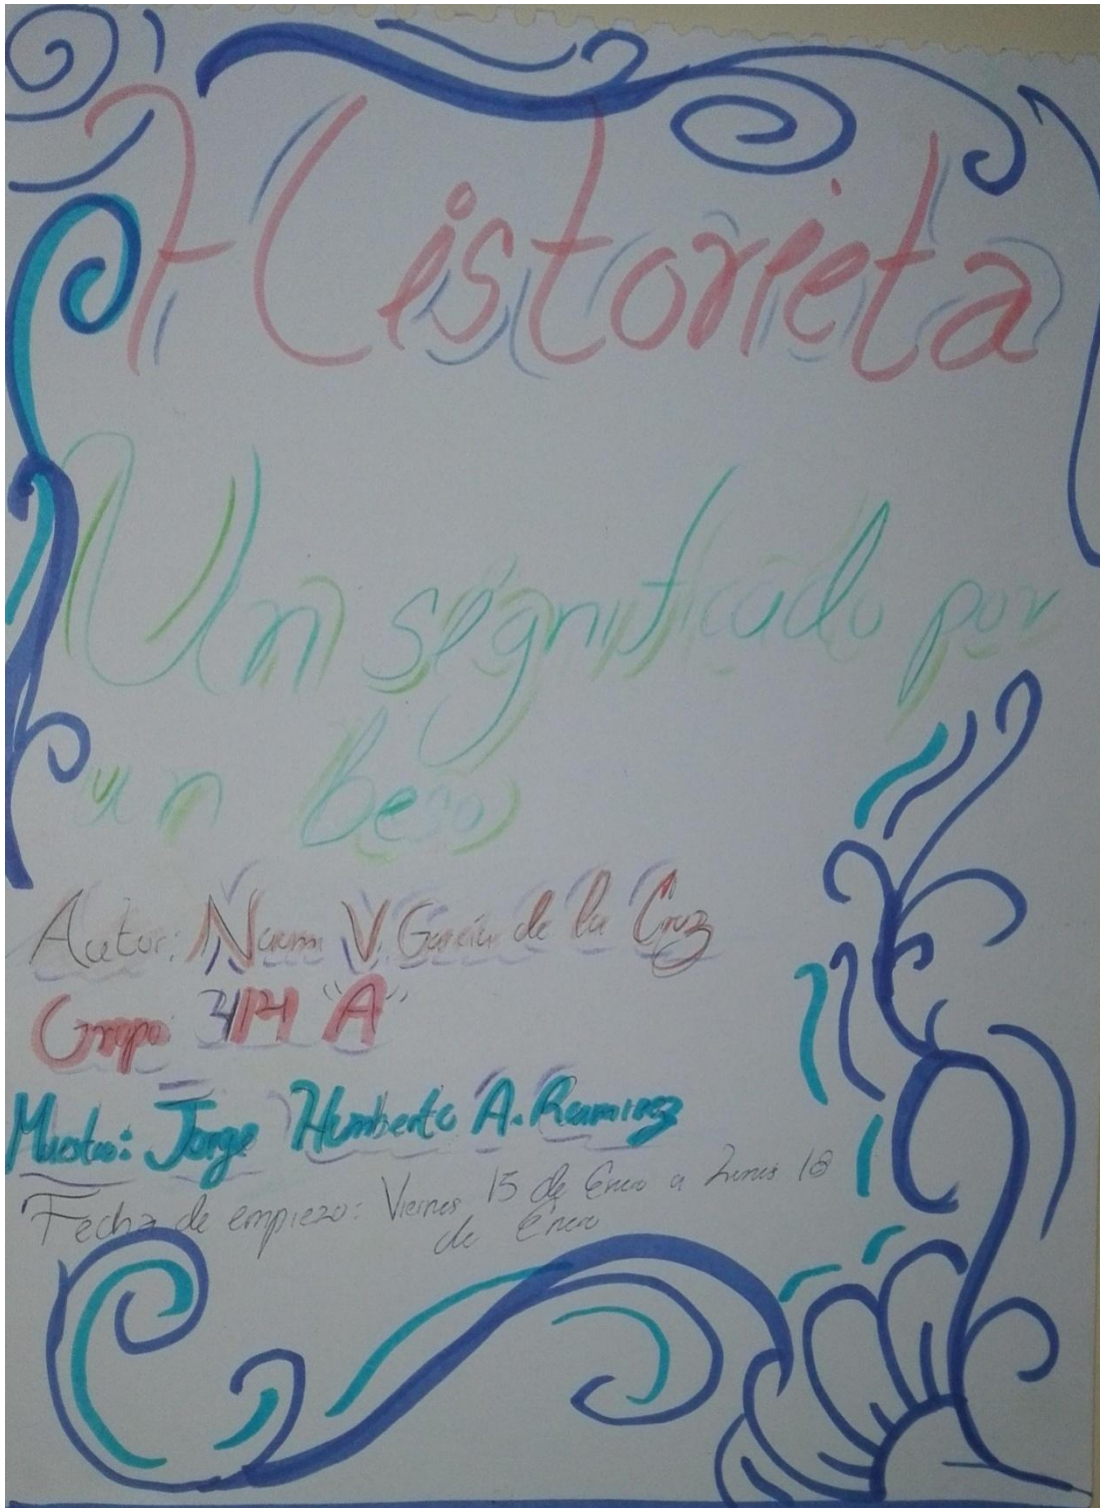 Historieta
Un significado por
un beso
Autor: V. García de la Cruz
Grupo "A"
Maestro: Jorge Humberto A. Ramirez
Fecha de empiezo: Viernes 15 de Enero a Lunes 18
de Enero